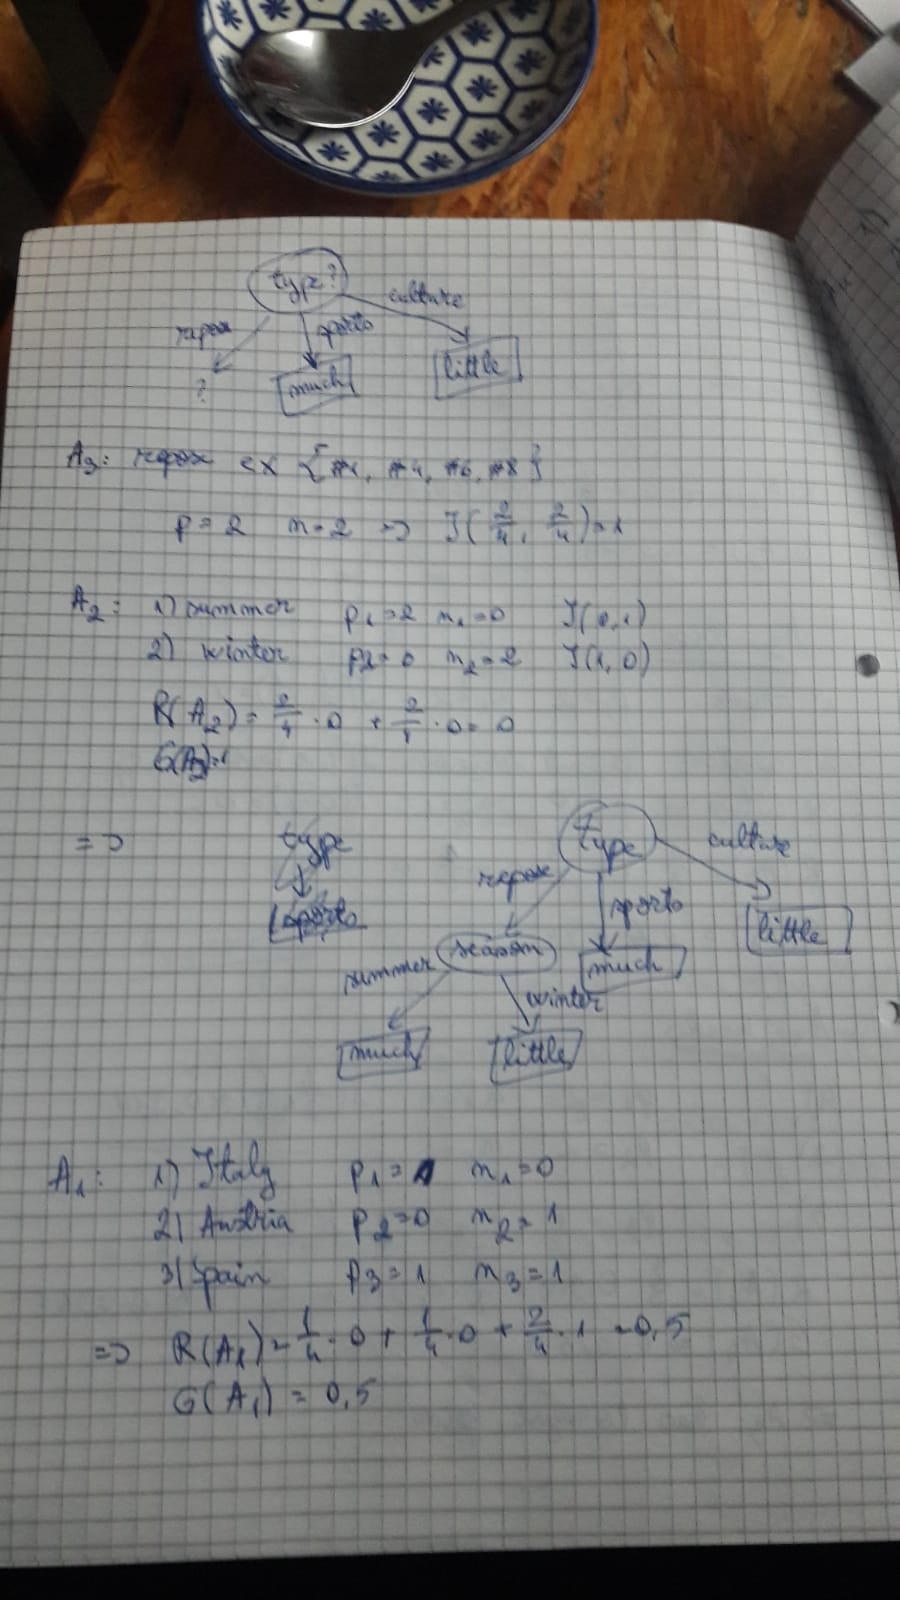 type?
culture
repos
sports
?
much
little
A3: repos ex {#1, #4, #6, #8}
p = 2 n = 2 => I(2/4, 2/4) = 1
A2: 1) summer p1 = 2 n1 = 0 I(0,1)
2) winter p2 = 0 n2 = 2 I(1, 0)
R(A2) = 2/4 · 0 + 2/4 · 0 = 0
G(A2) = 1
=> type
type
culture
repos
sports
sports
little
season
much
summer
winter
much
little
A1: 1) Italy p1 = 1 n1 = 0
2) Austria p2 = 0 n2 = 1
3) Spain p3 = 1 n3 = 1
=> R(A1) = 1/4 · 0 + 1/4 · 0 + 2/4 · 1 = 0,5
G(A1) = 0,5